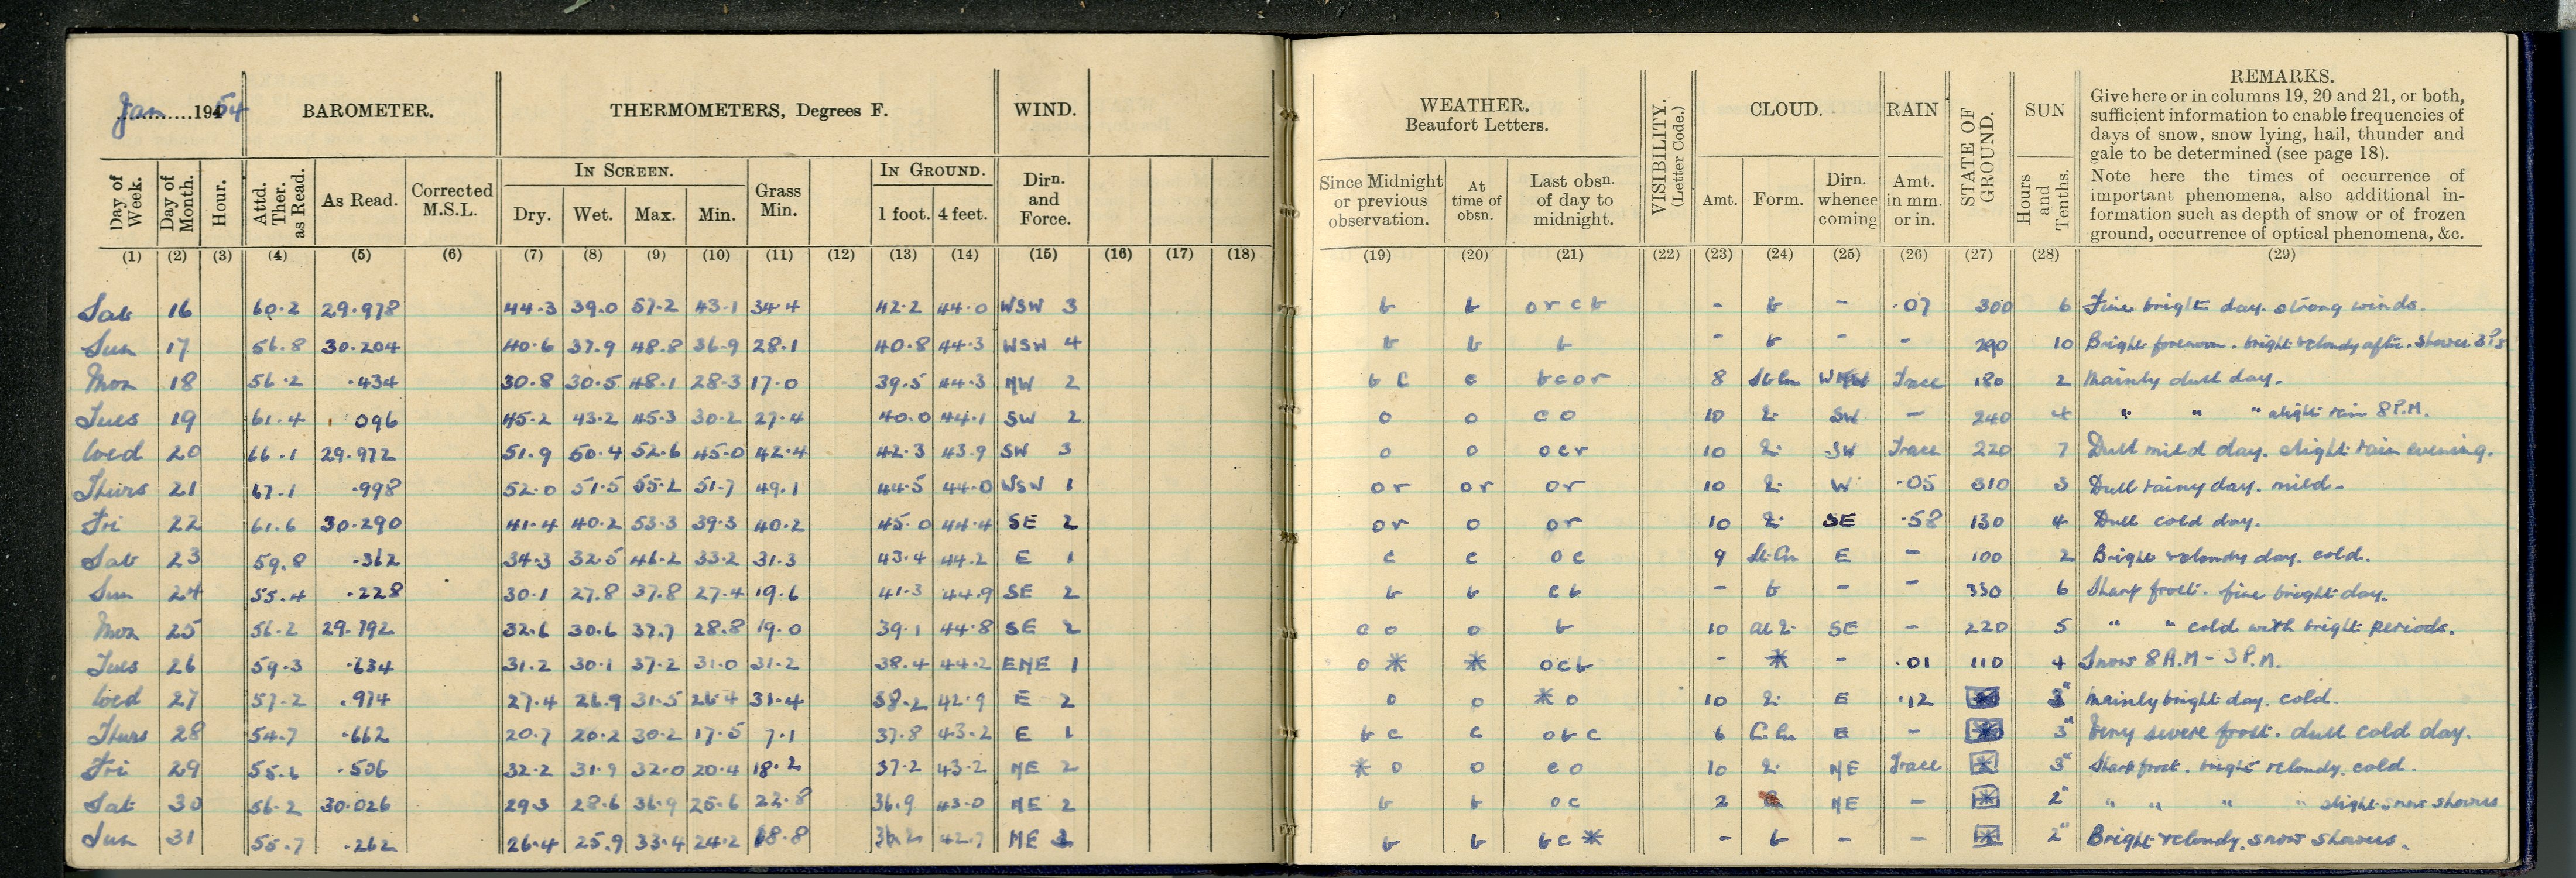 Jan 1954
BAROMETER.
THERMOMETERS, Degrees F.
WIND.
WEATHER.
Beaufort Letters.
VISIBILITY.
(Letter Code.)
CLOUD.
RAIN
STATE OF GROUND.
SUN
REMARKS.
Give here or in columns 19, 20 and 21, or both,
sufficient information to enable frequencies of
days of snow, snow lying, hail, thunder and
gale to be determined (see page 18).
Note here the times of occurrence of
important phenomena, also additional in-
formation such as depth of snow or of frozen
ground, occurrence of optical phenomena, &c.
Day of Week. Day of Month. Hour. Attd. Ther. as Read. As Read. Corrected M.S.L.
IN SCREEN.
Dry. Wet. Max. Min.
Grass Min.
IN GROUND.
1 foot. 4 feet.
Dirn. and Force.
Since Midnight or previous observation.
At time of obsn.
Last obsn. of day to midnight.
Amt. Form. Dirn. whence coming
Amt. in mm. or in.
Hours and Tenths.
(1) (2) (3) (4) (5) (6) (7) (8) (9) (10) (11) (12) (13) (14) (15) (16) (17) (18) (19) (20) (21) (22) (23) (24) (25) (26) (27) (28) (29)
Sat 16 60.2 29.978 44.3 39.0 57.2 43.1 34.4 42.2 44.0 WSW 3 b b orcb - b - .07 300 6 Fine bright day. strong winds.
Sun 17 56.8 30.204 40.6 37.9 48.8 36.9 28.1 40.8 44.3 WSW 4 b b b - b - - 290 10 Bright forenoon. bright & cloudy after. shower
Mon 18 56.2 .434 30.8 30.5 48.1 28.3 17.0 39.5 44.3 NW 2 b c c bcor 8 St Cu W Trace 180 2 Mainly dull day.
Tues 19 61.4 096 45.2 43.2 45.3 30.2 27.4 40.0 44.1 SW 2 o o co 10 SW - 240 4 " " " slight rain 8 P.M.
Wed 20 66.1 29.972 51.9 50.4 52.6 45.0 42.4 42.3 43.9 SW 3 o o ocr 10 SW Trace 220 7 Dull mild day. slight rain evening.
Thurs 21 67.1 .998 52.0 51.5 55.2 51.7 49.1 44.5 44.0 WSW 1 or or or 10 W .05 310 3 Dull rainy day. mild.
Fri 22 61.6 30.290 41.4 40.2 53.3 39.3 40.2 45.0 44.4 SE 2 or o or 10 SE .58 130 4 Dull cold day.
Sat 23 59.8 .362 34.3 32.5 46.2 33.2 31.3 43.4 44.2 E 1 c c oc 9 St.Cu E - 100 2 Bright & cloudy day. cold.
Sun 24 55.4 .228 30.1 27.8 37.8 27.4 19.6 41.3 44.9 SE 2 b b cb - b - - 330 6 Sharp frost. fine bright day.
Mon 25 56.2 29.792 32.6 30.6 37.7 28.8 19.0 39.1 44.8 SE 2 co o b 10 SE - 220 5 " " cold with bright periods.
Tues 26 59.3 .634 31.2 30.1 37.2 31.0 31.2 38.4 44.2 ENE 1 o * * ocb - * - .01 110 4 Snow 8 A.M - 3 P.M.
Wed 27 57.2 .974 27.4 26.9 31.5 26.4 31.4 38.2 42.9 E 2 o o * o 10 E .12 3" mainly bright day. cold.
Thurs 28 54.7 .662 20.7 20.2 30.2 17.5 7.1 37.8 43.2 E 1 bc c obc 6 E - 3" Very severe frost. dull cold day.
Fri 29 55.6 .506 32.2 31.9 32.0 20.4 18.2 37.2 43.2 NE 2 * o o co 10 NE Trace * 3" Sharp frost. bright & cloudy. cold.
Sat 30 56.2 30.026 29.3 28.6 36.9 25.6 22.8 36.9 43.0 NE 2 b b oc 2 NE - * 2" " " " " slight snow showers
Sun 31 55.7 .262 26.4 25.9 33.4 24.2 18.8 42.7 NE b b bc * - b - - * 2" Bright & cloudy. snow showers.